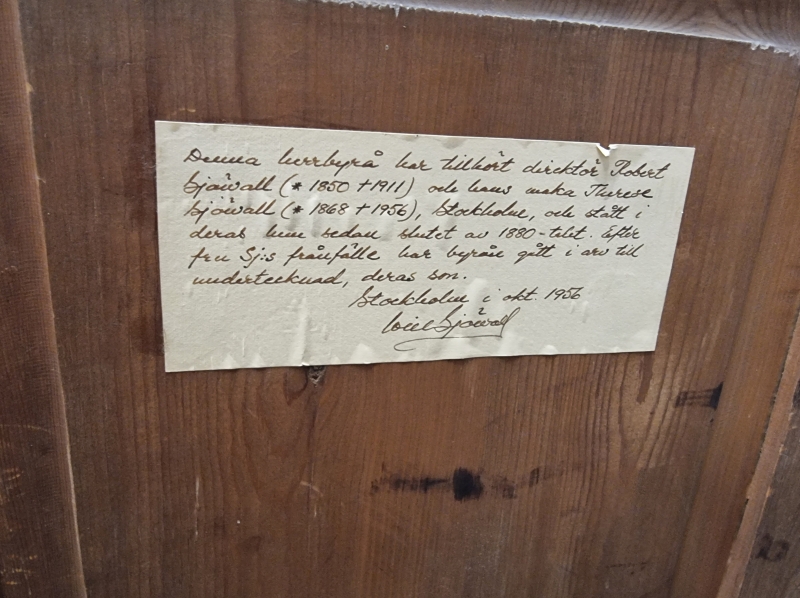 Denna herrbyrå har tillhört direktör Robert
Sjöwall (* 1850 † 1911) och hans maka Therese
Sjöwall (* 1868 † 1956), Stockholm, och stått i
deras hem sedan slutet av 1880-talet. Efter
fru Sj:s frånfälle har byrån gått i arv till
undertecknad, deras son.
Stockholm i okt. 1956
Sjöwall